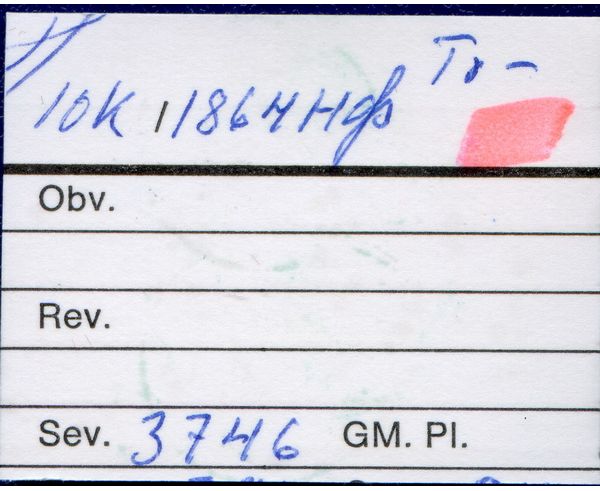 Tr-
10K 1864 Hфв
Obv.
Rev.
Sev. 3746 GM. Pl.